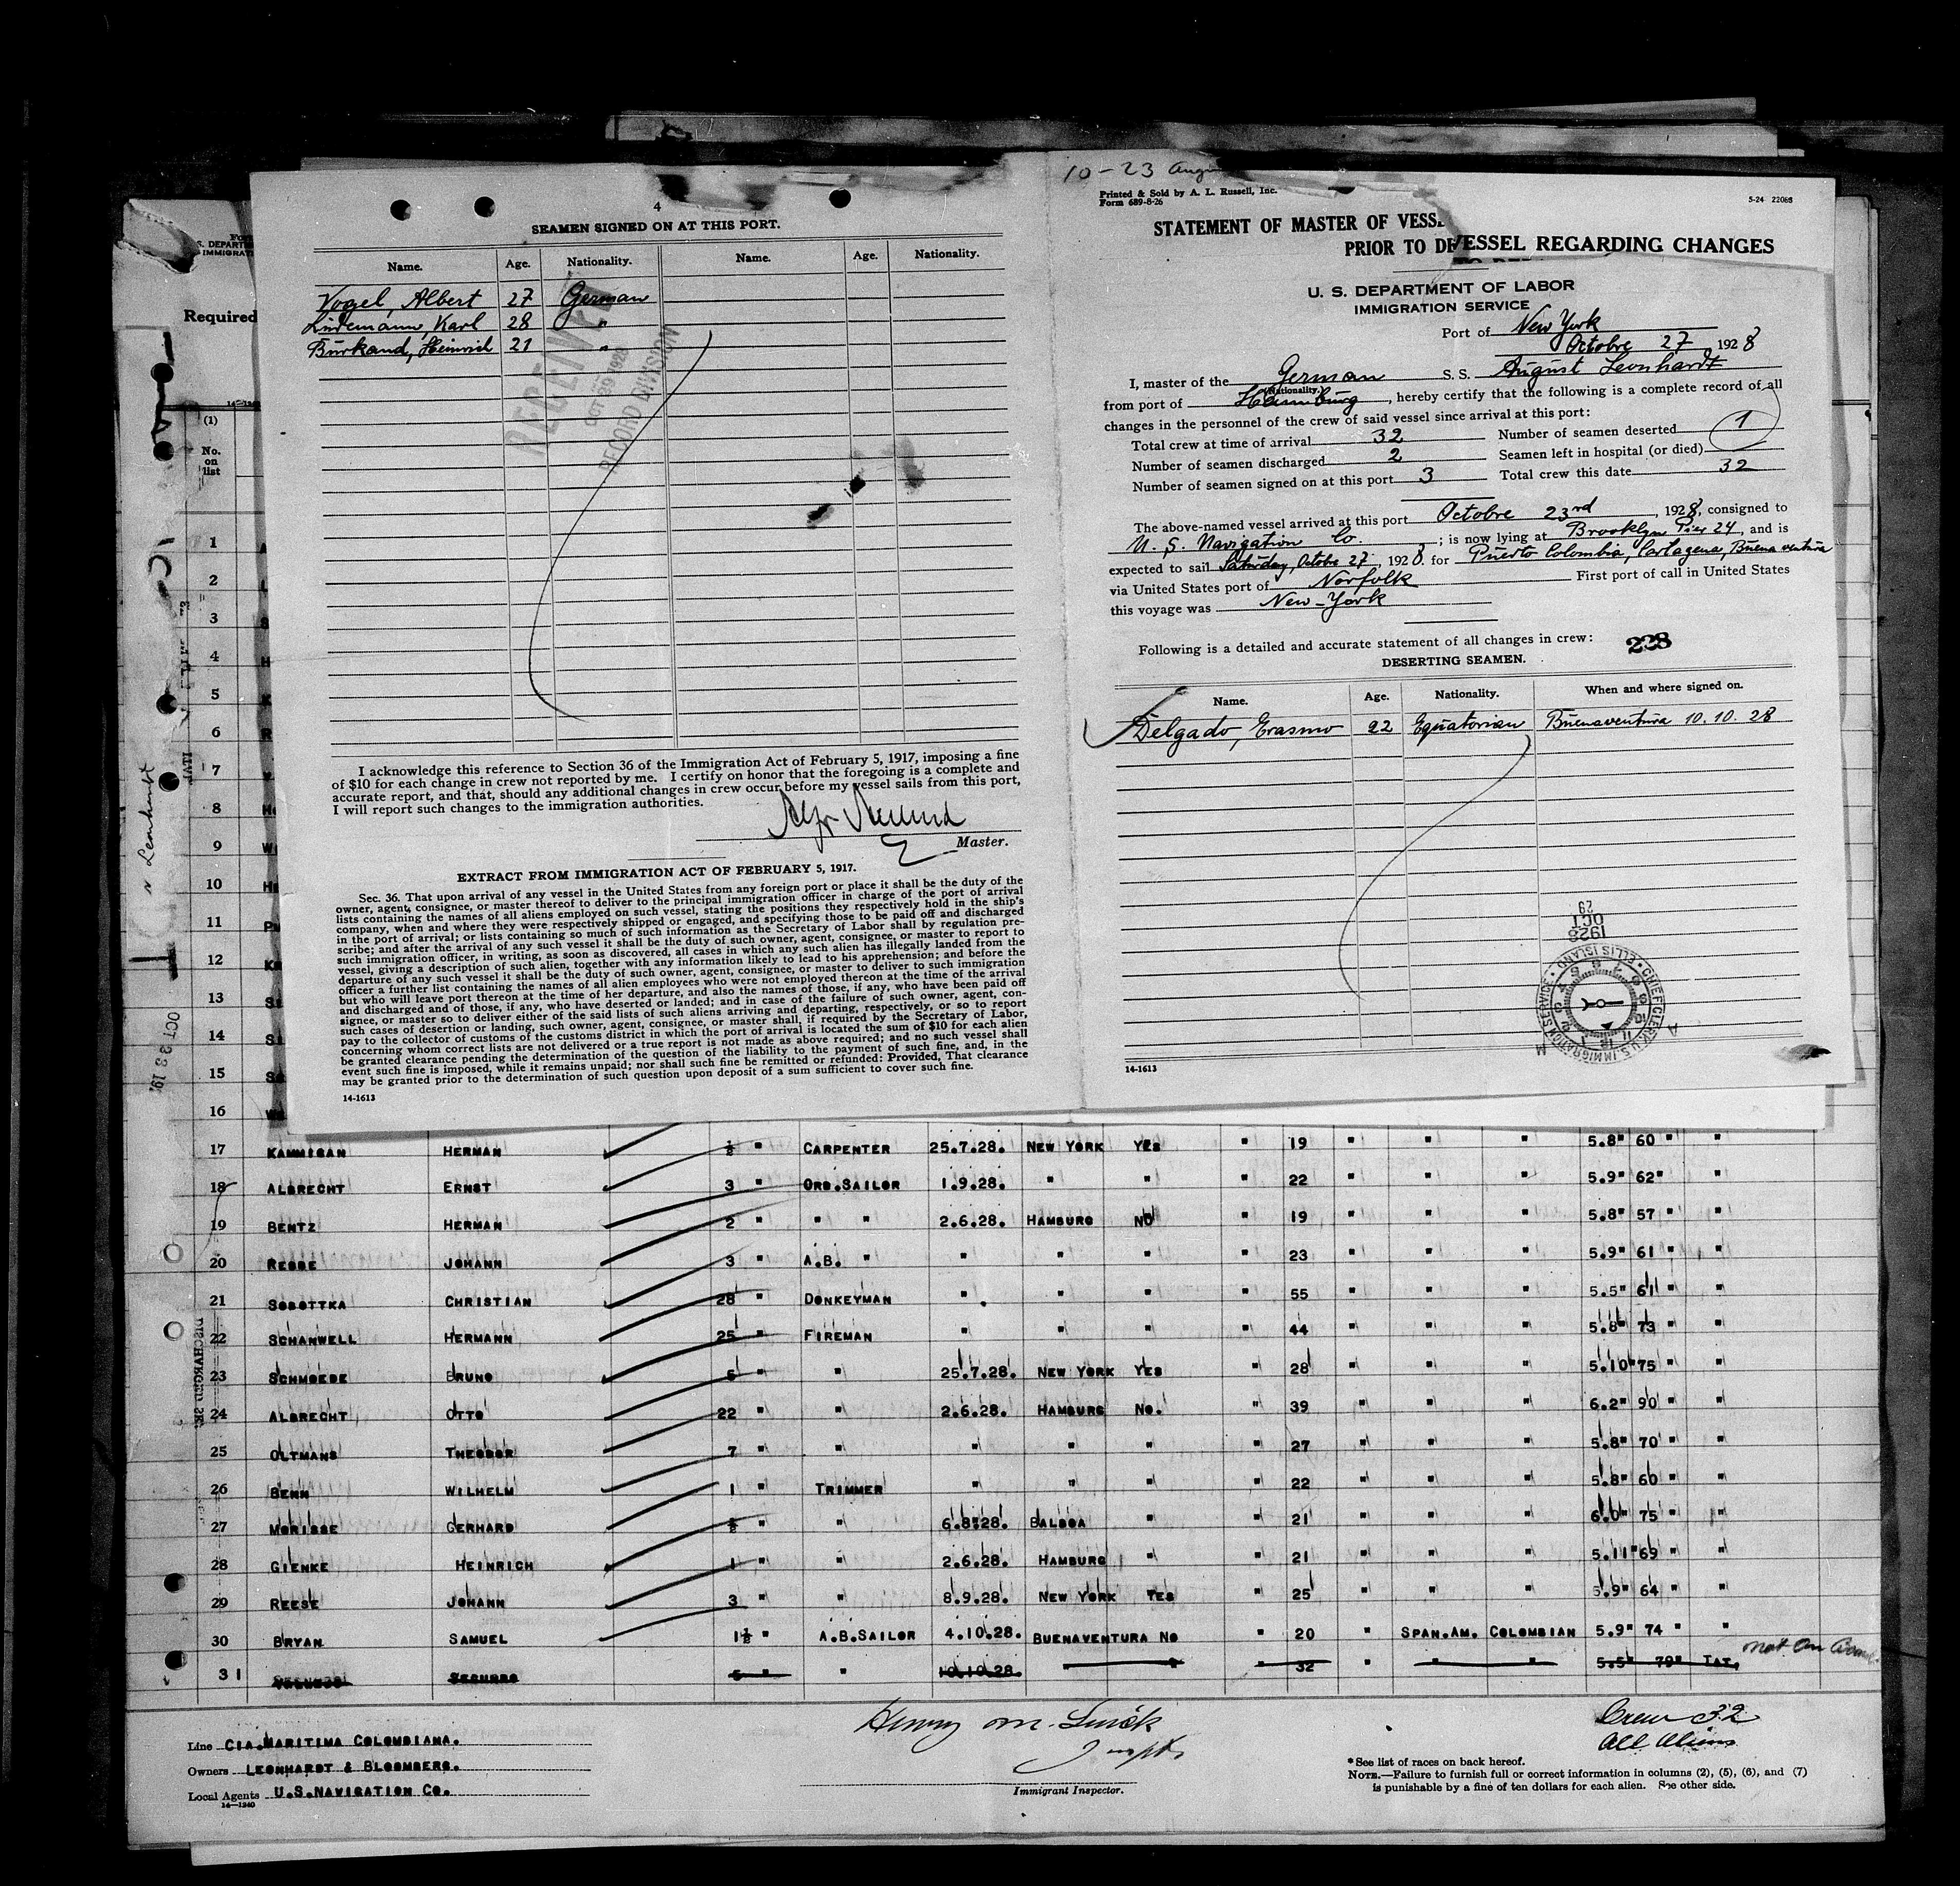 4
SEAMEN SIGNED ON AT THIS PORT.
Name. Age. Nationality. Name. Age. Nationality.
Vogel, Albert 27 German
Lindemann, Karl 28 "
Burkand, Heinrich 21 "
RECEIVED
OCT 29 1928
RECORD DIVISION
I acknowledge this reference to Section 36 of the Immigration Act of February 5, 1917, imposing a fine
of $10 for each change in crew not reported by me. I certify on honor that the foregoing is a complete and
accurate report, and that, should any additional changes in crew occur before my vessel sails from this port,
I will report such changes to the immigration authorities.
Master.
EXTRACT FROM IMMIGRATION ACT OF FEBRUARY 5, 1917.
Sec. 36. That upon arrival of any vessel in the United States from any foreign port or place it shall be the duty of the
owner, agent, consignee, or master thereof to deliver to the principal immigration officer in charge of the port of arrival
lists containing the names of all aliens employed on such vessel, stating the positions they respectively hold in the ship's
company, when and where they were respectively shipped or engaged, and specifying those to be paid off and discharged
in the port of arrival; or lists containing so much of such information as the Secretary of Labor shall by regulation pre-
scribe; and after the arrival of any such vessel it shall be the duty of such owner, agent, consignee, or master to report to
such immigration officer, in writing, as soon as discovered, all cases in which any such alien has illegally landed from the
vessel, giving a description of such alien, together with any information likely to lead to his apprehension; and before the
departure of any such vessel it shall be the duty of such owner, agent, consignee, or master to deliver to such immigration
officer a further list containing the names of all alien employees who were not employed thereon at the time of the arrival
but who will leave port thereon at the time of her departure, and also the names of those, if any, who have been paid off
and discharged and of those, if any, who have deserted or landed; and in case of the failure of such owner, agent, con-
signee, or master so to deliver either of the said lists of such aliens arriving and departing, respectively, or so to report
such cases of desertion or landing, such owner, agent, consignee, or master shall, if required by the Secretary of Labor,
pay to the collector of customs of the customs district in which the port of arrival is located the sum of $10 for each alien
concerning whom correct lists are not delivered or a true report is not made as above required; and no such vessel shall
be granted clearance pending the determination of the question of the liability to the payment of such fine, and, in the
event such fine is imposed, while it remains unpaid; nor shall such fine be remitted or refunded: Provided, That clearance
may be granted prior to the determination of such question upon deposit of a sum sufficient to cover such fine.
14-1613
10-23
Printed & Sold by A. L. Russell, Inc.
Form 689-8-26
5-24 22088
STATEMENT OF MASTER OF VESS
PRIOR TO DE
VESSEL REGARDING CHANGES
U. S. DEPARTMENT OF LABOR
IMMIGRATION SERVICE
Port of New York
Octobre 27, 1928
I, master of the German S. S. August Leonhardt
(Nationality.)
from port of Hamburg, hereby certify that the following is a complete record of all
changes in the personnel of the crew of said vessel since arrival at this port:
Total crew at time of arrival 32 Number of seamen deserted 1
Number of seamen discharged 2 Seamen left in hospital (or died)
Number of seamen signed on at this port 3 Total crew this date 32
The above-named vessel arrived at this port Octobre 23rd, 1928, consigned to
U. S. Navigation Co.; is now lying at Brooklyn Pier 24, and is
expected to sail Saturday, Octobre 27, 1928 for Puerto Colombia, Cartagena, Buena ventura
via United States port of Norfolk First port of call in United States
this voyage was New-York
Following is a detailed and accurate statement of all changes in crew:
228
DESERTING SEAMEN.
Name. Age. Nationality. When and where signed on.
Delgado, Erasmo 22 Equatorian Buenaventura 10. 10. 28
1928
OCT
29
CHIEF CLERK U.S. IMMIGRATION SERVICE • ELLIS ISLAND •
14-1613
S. DEPART
IMMIGRATI
Required
(1)
No.
on
list
1
2
3
4
5
6
7
8
9
10
11
12
13
14
15
16
Leonhardt
DISCHARGED
17 KAMMIGAN HERMAN ½ " CARPENTER 25.7.28. NEW YORK YES " 19 " " " 5.8" 60 " "
18 ALBRECHT ERNST 3 " ORD.SAILOR 1.9.28. " " " 22 " " " 5.9" 62" "
19 BENTZ HERMAN 2 " " " 2.6.28. HAMBURG NO " 19 " " " 5.8" 57 " "
20 REDDE JOHANN 3 " A.B. " " " " " 23 " " " 5.9" 61 " "
21 SOBOTTKA CHRISTIAN 28 " DONKEYMAN " " " " 55 " " " 5.5" 61 " "
22 SCHANWELL HERMANN 25 " FIREMAN " " " " 44 " " " 5.8" 73 " "
23 SCHMOEDE BRUNO 5 " " 25.7.28. NEW YORK YES " 28 " " " 5.10"75 " "
24 ALBRECHT OTTO 22 " " 2.6.28. HAMBURG NO. " 39 " " " 6.2" 90 " "
25 OLTMANS THEODOR 7 " " " " " " 27 " " " 5.8" 70 " "
26 BENN WILHELM 1 " TRIMMER " " " " 22 " " " 5.8" 60 " "
27 MORISSE GERHARD ½ " " 6.8.28. BALBOA " " 21 " " " 6.0" 75 " "
28 GIENKE HEINRICH 1 " " 2.6.28. HAMBURG " " 21 " " " 5.11"69 " "
29 REESE JOHANN 3 " " 8.9.28. NEW YORK YES " 25 " " " 5.9" 64 " "
30 BRYAN SAMUEL 1½ " A.B.SAILOR 4.10.28. BUENAVENTURA NO " 20 " SPAN.AM. COLOMBIAN 5.9" 74 " "
not on board
31 5 " " 10.10.28. " " " 32 " " " 5.5" 79" TAT.
Line CIA.MARITIMA COLOMBIANA.
Owners LEONHARDT & BLOOMBERG.
Local Agents U.S.NAVIGATION CO.
14-1240
Henry M.
Immigrant Inspector.
Crew 32
All Aliens
*See list of races on back hereof.
NOTE.—Failure to furnish full or correct information in columns (2), (5), (6), and (7)
is punishable by a fine of ten dollars for each alien. See other side.